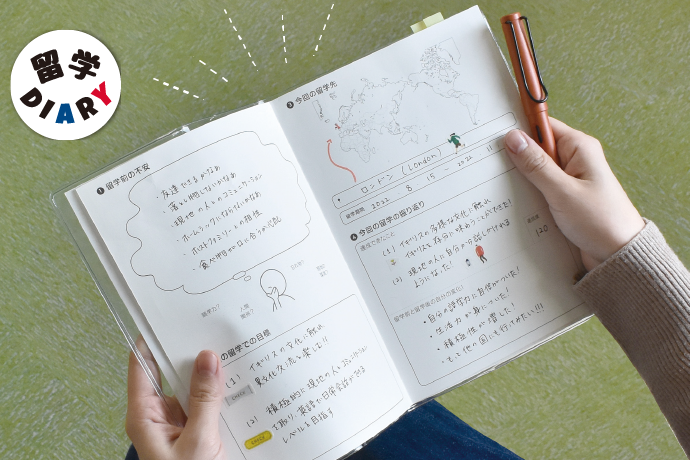 留学
DIARY
❶ 留学前の不安
・友達できるかなぁ
・現地の人とのコミュニケーション
・ホームシックにならないかなぁ
・ホストファミリーとの相性
・食べ物が口に合うか心配
語学力?
人間
関係?
の留学での目標
(1) イギリスの文化に触れ
異文化交流を楽しむ!!
(2) 積極的に現地の人とコミュニケーション
を取り、英語で日常会話ができる
レベルを目指す
❸ 今回の留学先
ロンドン (London)
留学期間 2022 8 15 - 2022 11
❹ 今回の留学の振り返り
達成できたこと
(1) イギリスの多様な文化に触れ
イギリスを存分に味わうことができた!
(2) 現地の人に自分から話しかけれる
ようになった!
120
留学前と留学後の自分の変化!
・自分の語学力に自信がついた!
・生活力が身についた!
・積極性が増した!
・もっと他の国にも行ってみたい!!!